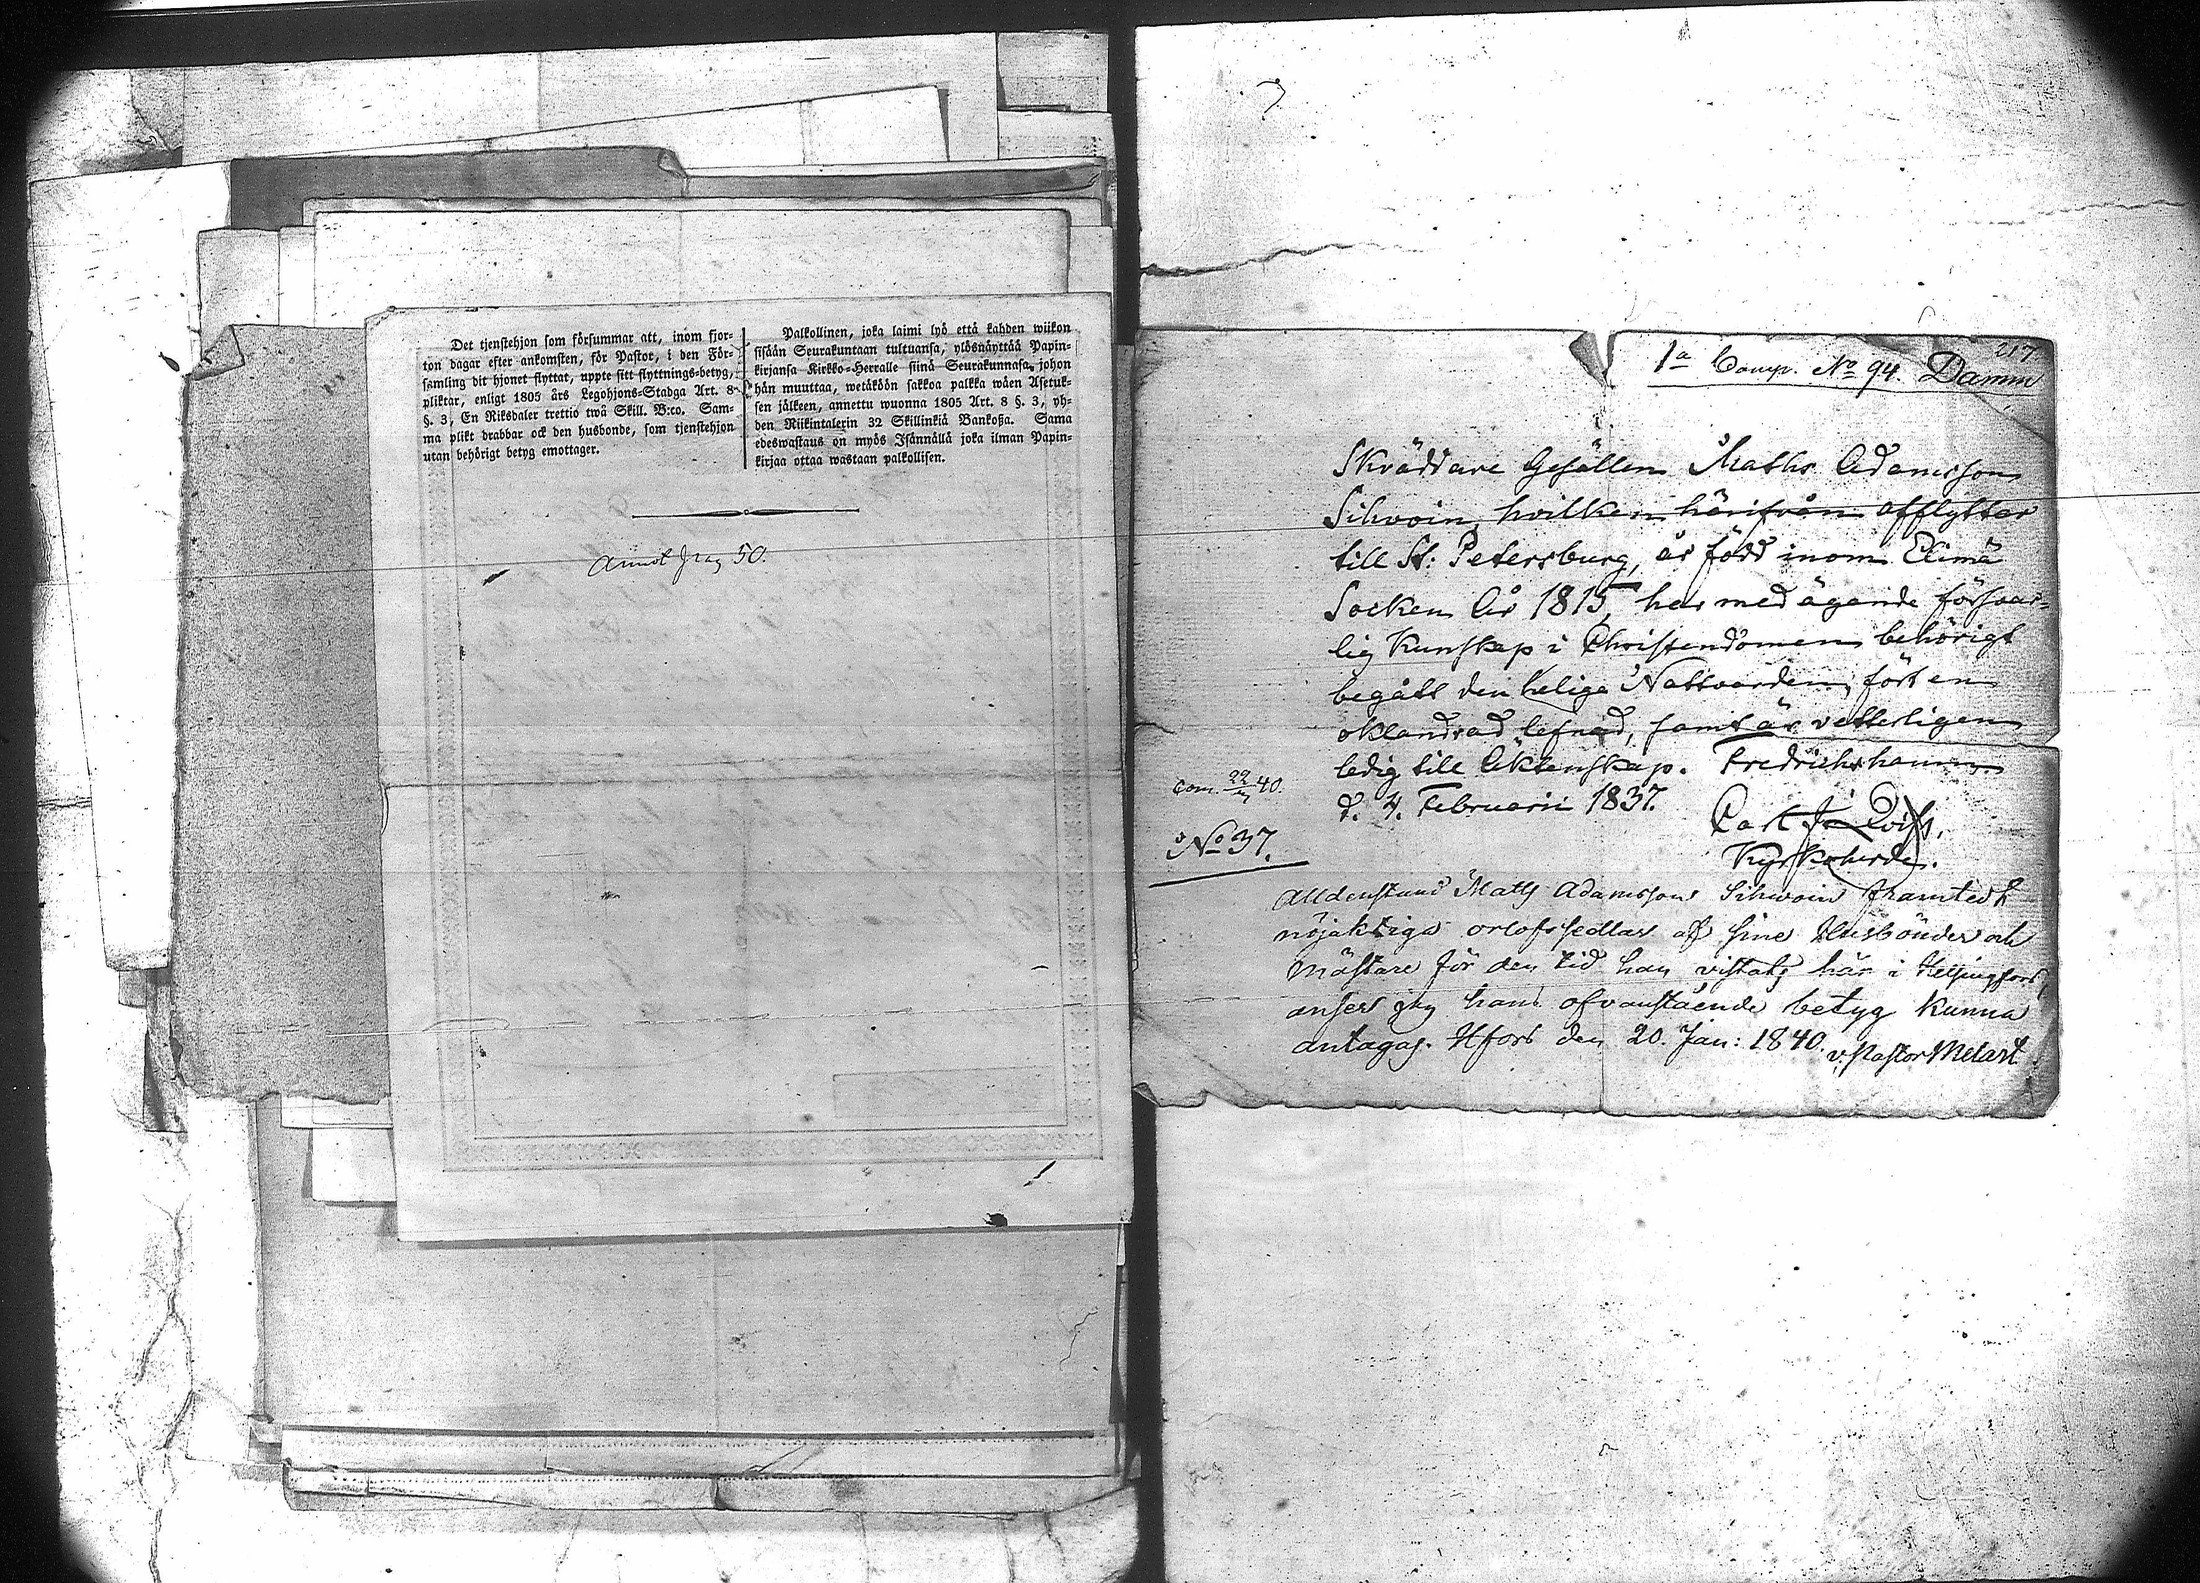 Det tjenstehjon som försummar att, inom fjor-
ton dagar efter ankomsten, för Pastor, i den För-
samling dit hjonet flyttat, uppte sitt flyttnings-betyg,
pliktar, enligt 1805 års Legohjons-Stadga Art. 8
§. 3, En Riksdaler trettio twå Skill. B:co. Sam-
ma plikt drabbar ock den husbonde, som tjenstehjon
utan behörigt betyg emottager.
Palkollinen, joka laimi lyö että kahden wiikon
sisään Seurakuntaan tultuansa, ylösnäyttää Papin-
kirjansa Kirkko-Herralle siinä Seurakunnasa, johon
hän muuttaa, wetäköön sakkoa palkka wäen Asetuk-
sen jälkeen, annettu wuonna 1805 Art. 8 §. 3, yh-
den Riikintalerin 32 Skillinkiä Bankoßa. Sama
edeswastaus on myös Isännällä joka ilman Papin-
kirjaa ottaa wastaan palkollisen.
50.
217
1a Comp. No 94. Damm
Skräddare Gesällen Maths Adamsson
Sihvoin, hvilken härifrån afflyttar
till St: Petersburg, är född inom Elimä
Socken År 1815, har med ägande försvar-
lig Kunskap i Christendomen behörigt
begått den heliga Nattvarden, fört en
oklandrad lefnad, samt är vetterligen
ledig till Äktenskap. Fredrichshamn
d. 4. Februarii 1837.
Kyrkoherde.
No 37.
Alldenstund Mats Adamsson Sihwoin framtedt
nöjaktiga orlofssedlar af sine Husbönder och
Mästare för den tid han vistats här i Helsingfors,
anser jag hans ofvanstående betyg kunna
antagas. Hfors den 20. Jan: 1840.
v. Pastor Melart